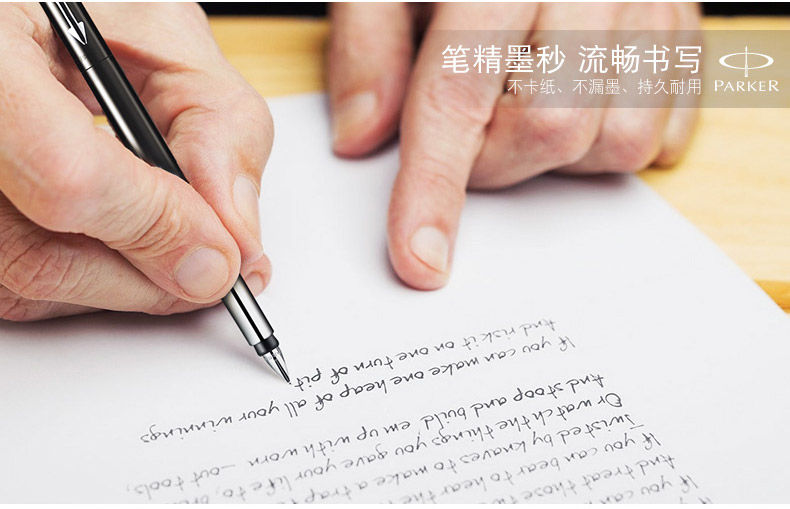 笔精墨秒 流畅书写
不卡纸、不漏墨、持久耐用
PARKER
If you can
And treat those
If you can bear to hear the
Twisted by knaves to make a trap
Or watch the things you gave your life to,
And stoop and build 'em up with worn — out tools,
If you can make one heap of all your winnings
And risk it on one turn of pit